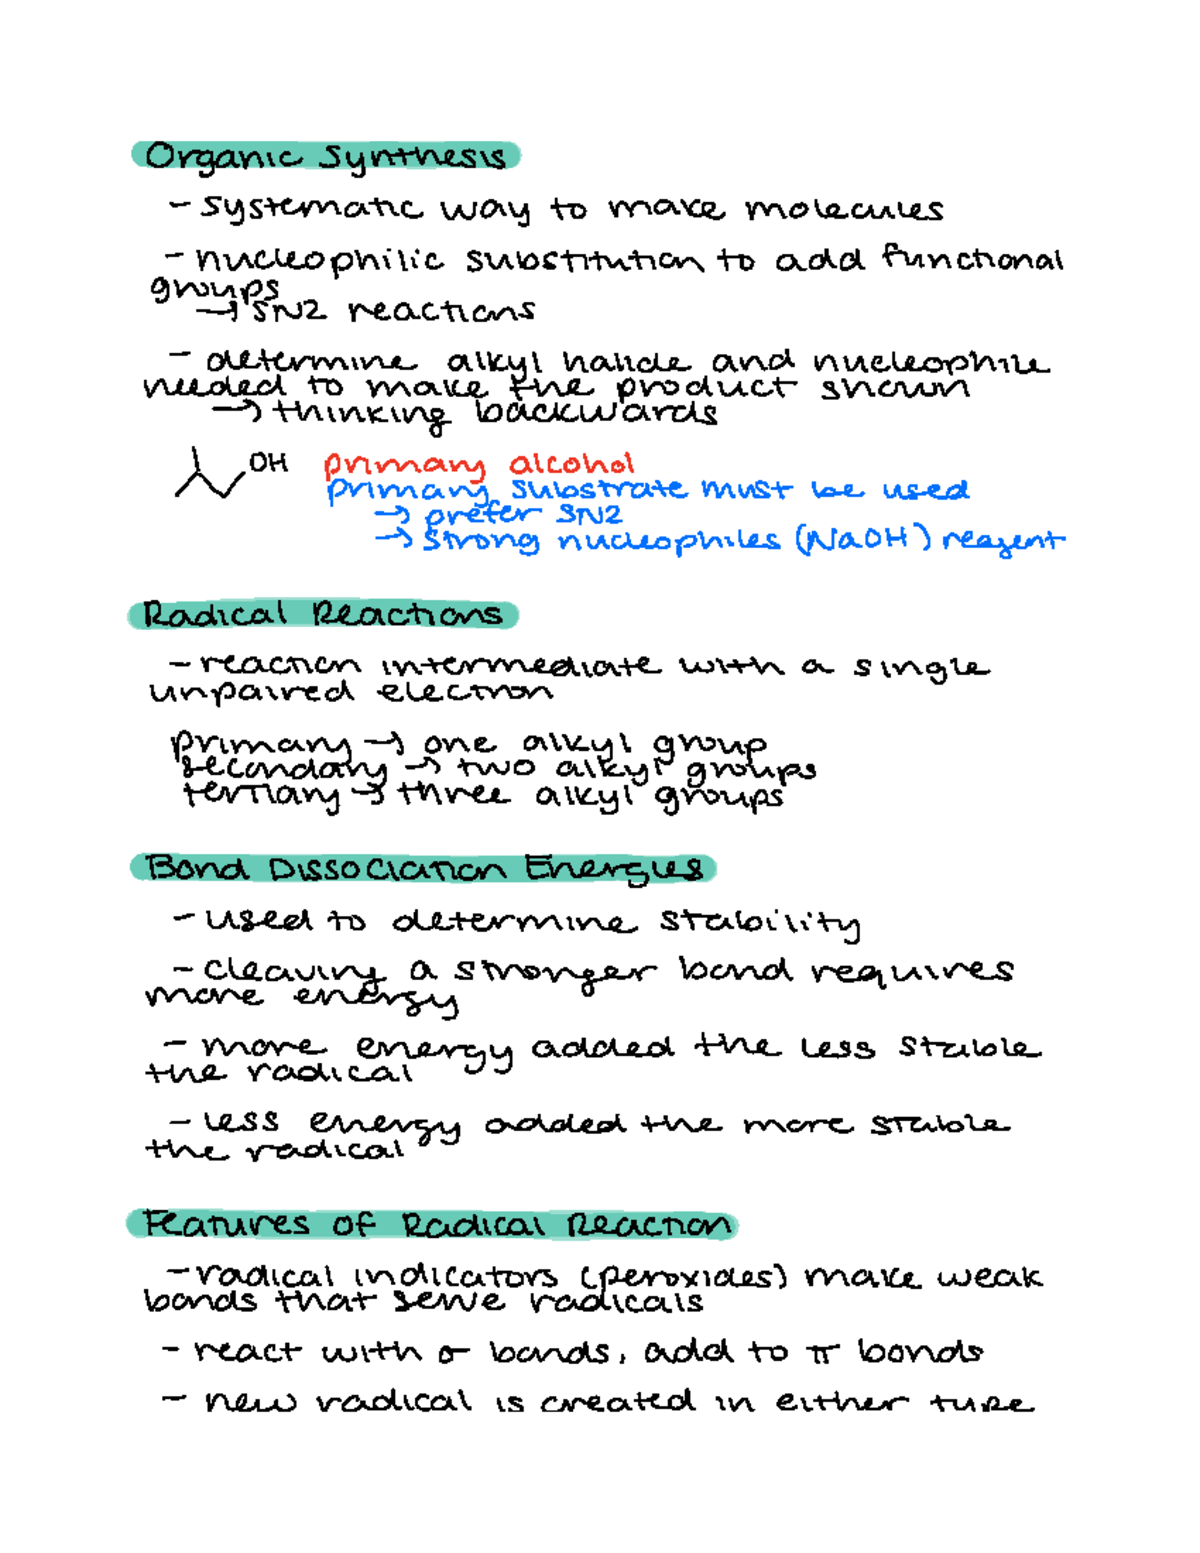 Organic Synthesis
- systematic way to make molecules
- nucleophilic substitution to add functional
groups
→ SN2 reactions
- determine alkyl halide and nucleophile
needed to make the product shown
→ thinking backwards
OH primary alcohol
primary substrate must be used
→ prefer SN2
→ strong nucleophiles (NaOH) reagent
Radical Reactions
- reaction intermediate with a single
unpaired electron
primary → one alkyl group
secondary → two alkyl groups
tertiary → three alkyl groups
Bond Dissociation Energies
- used to determine stability
- cleaving a stronger bond requires
more energy
- more energy added the less stable
the radical
- less energy added the more stable
the radical
Features of Radical Reaction
- radical indicators (peroxides) make weak
bonds that serve radicals
- react with σ bonds, add to π bonds
- new radical is created in either type